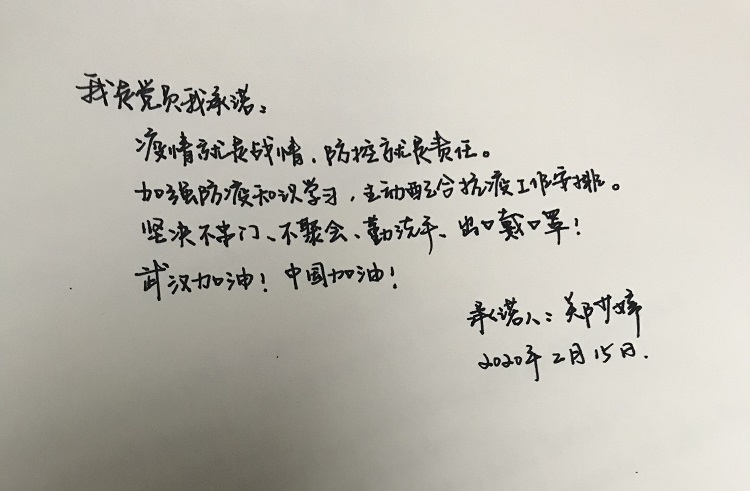 我是党员我承诺：
疫情就是战情，防控就是责任。
加强防疫知识学习，主动配合抗疫工作安排。
坚决不串门、不聚会、勤洗手、出口戴口罩！
武汉加油！中国加油！
承诺人：郑梦婷
2020年2月15日.